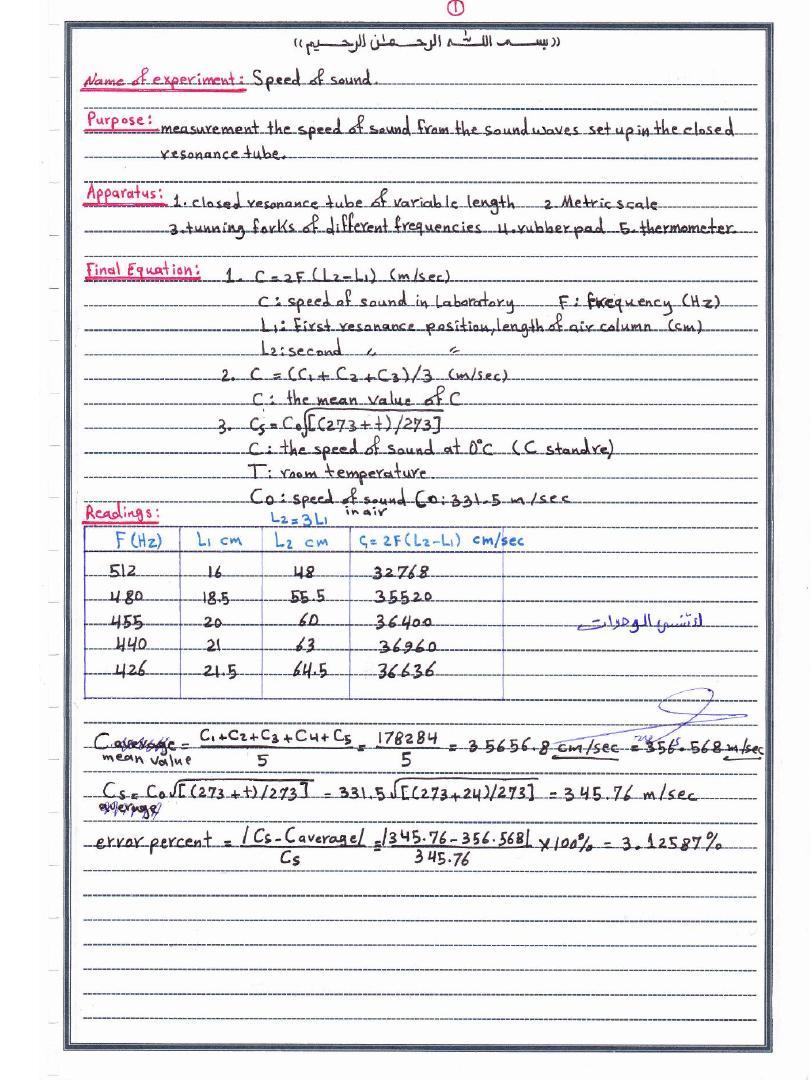 1
((بسم الله الرحمن الرحيم))
Name of experiment: Speed of sound.
Purpose: measurement the speed of sound from the sound waves set up in the closed
resonance tube.
Apparatus: 1. closed resonance tube of variable length 2. Metric scale
3. tunning forks of different frequencies 4. rubber pad 5. thermometer
Final Equation: 1. C = 2F (L2-L1) (m/sec)
C: speed of sound in Laboratory F: frequency (Hz)
L1: First resonance position, length of air column (cm)
L2: second 〃 〃
2. C = (C1 + C2 + C3)/3 (m/sec)
C: the mean value of C
3. Cs = Co√[(273+t)/273]
C: the speed of sound at 0°C (C standre)
T: room temperature
Co: speed of sound Co: 331.5 m/sec
in air
Readings:
L2=3L1
F (Hz) L1 cm L2 cm C= 2F(L2-L1) cm/sec
512 16 48 32768
480 18.5 55.5 35520
455 20 60 36400
لا تنسى الوحدات
440 21 63 36960
426 21.5 64.5 36636
C = C1+C2+C3+C4+C5 / 5 = 178284 / 5 = 35656.8 cm/sec = 356.568 m/sec
mean value
Cs = Co√[(273+t)/273] = 331.5√[(273+24)/273] = 345.76 m/sec
error percent = |Cs - Caverage| / Cs = |345.76-356.568| / 345.76 x100% = 3.12587%